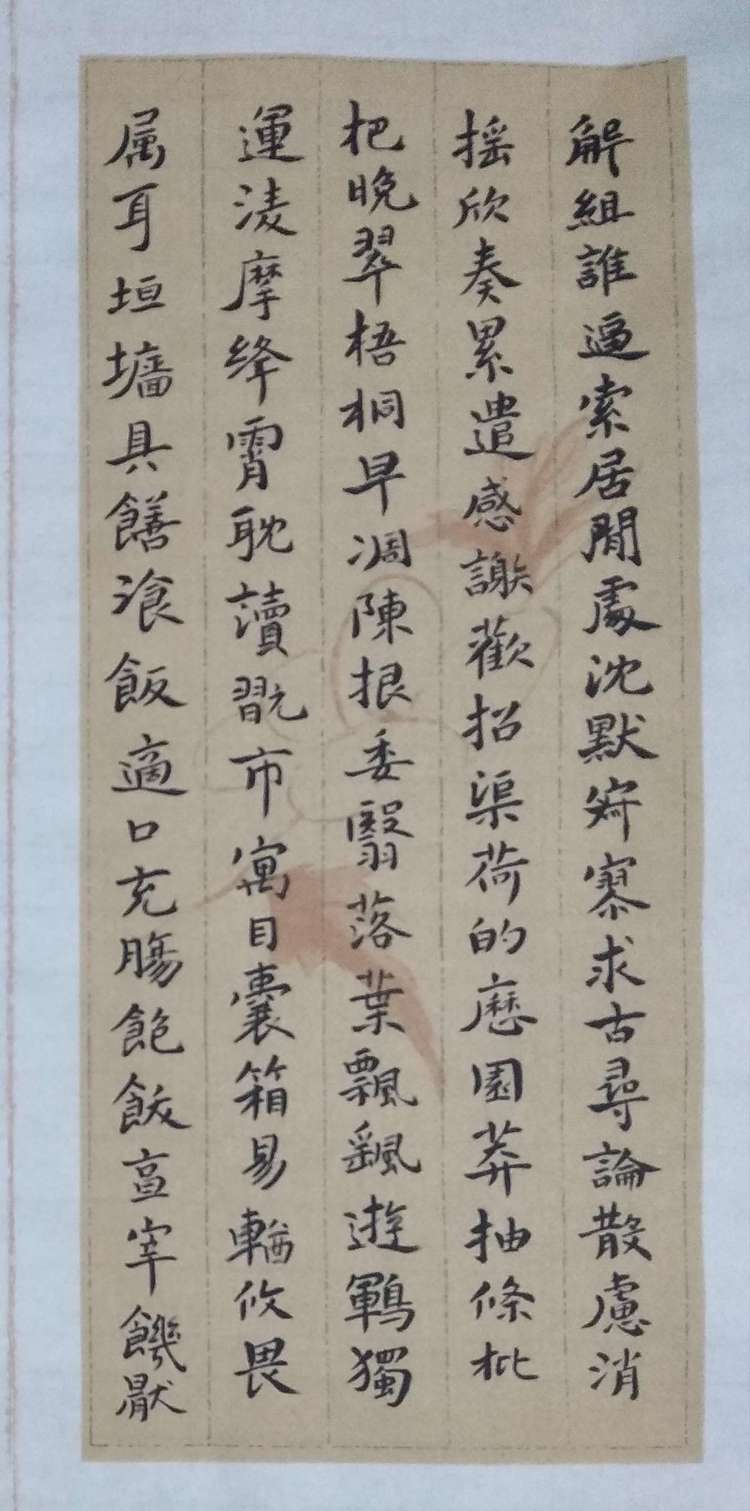 解組誰逼索居閒處沈默寂寥求古尋論散慮逍
搖欣奏累遣感謝歡招渠荷的歷園莽抽條枇
杷晚翠梧桐早凋陳根委翳落葉飄颻遊鵾獨
運淩摩絳霄耽讀翫市寓目囊箱易輶攸畏
属耳垣墻具饍湌飯適口充腸飽飫亯宰饑厭